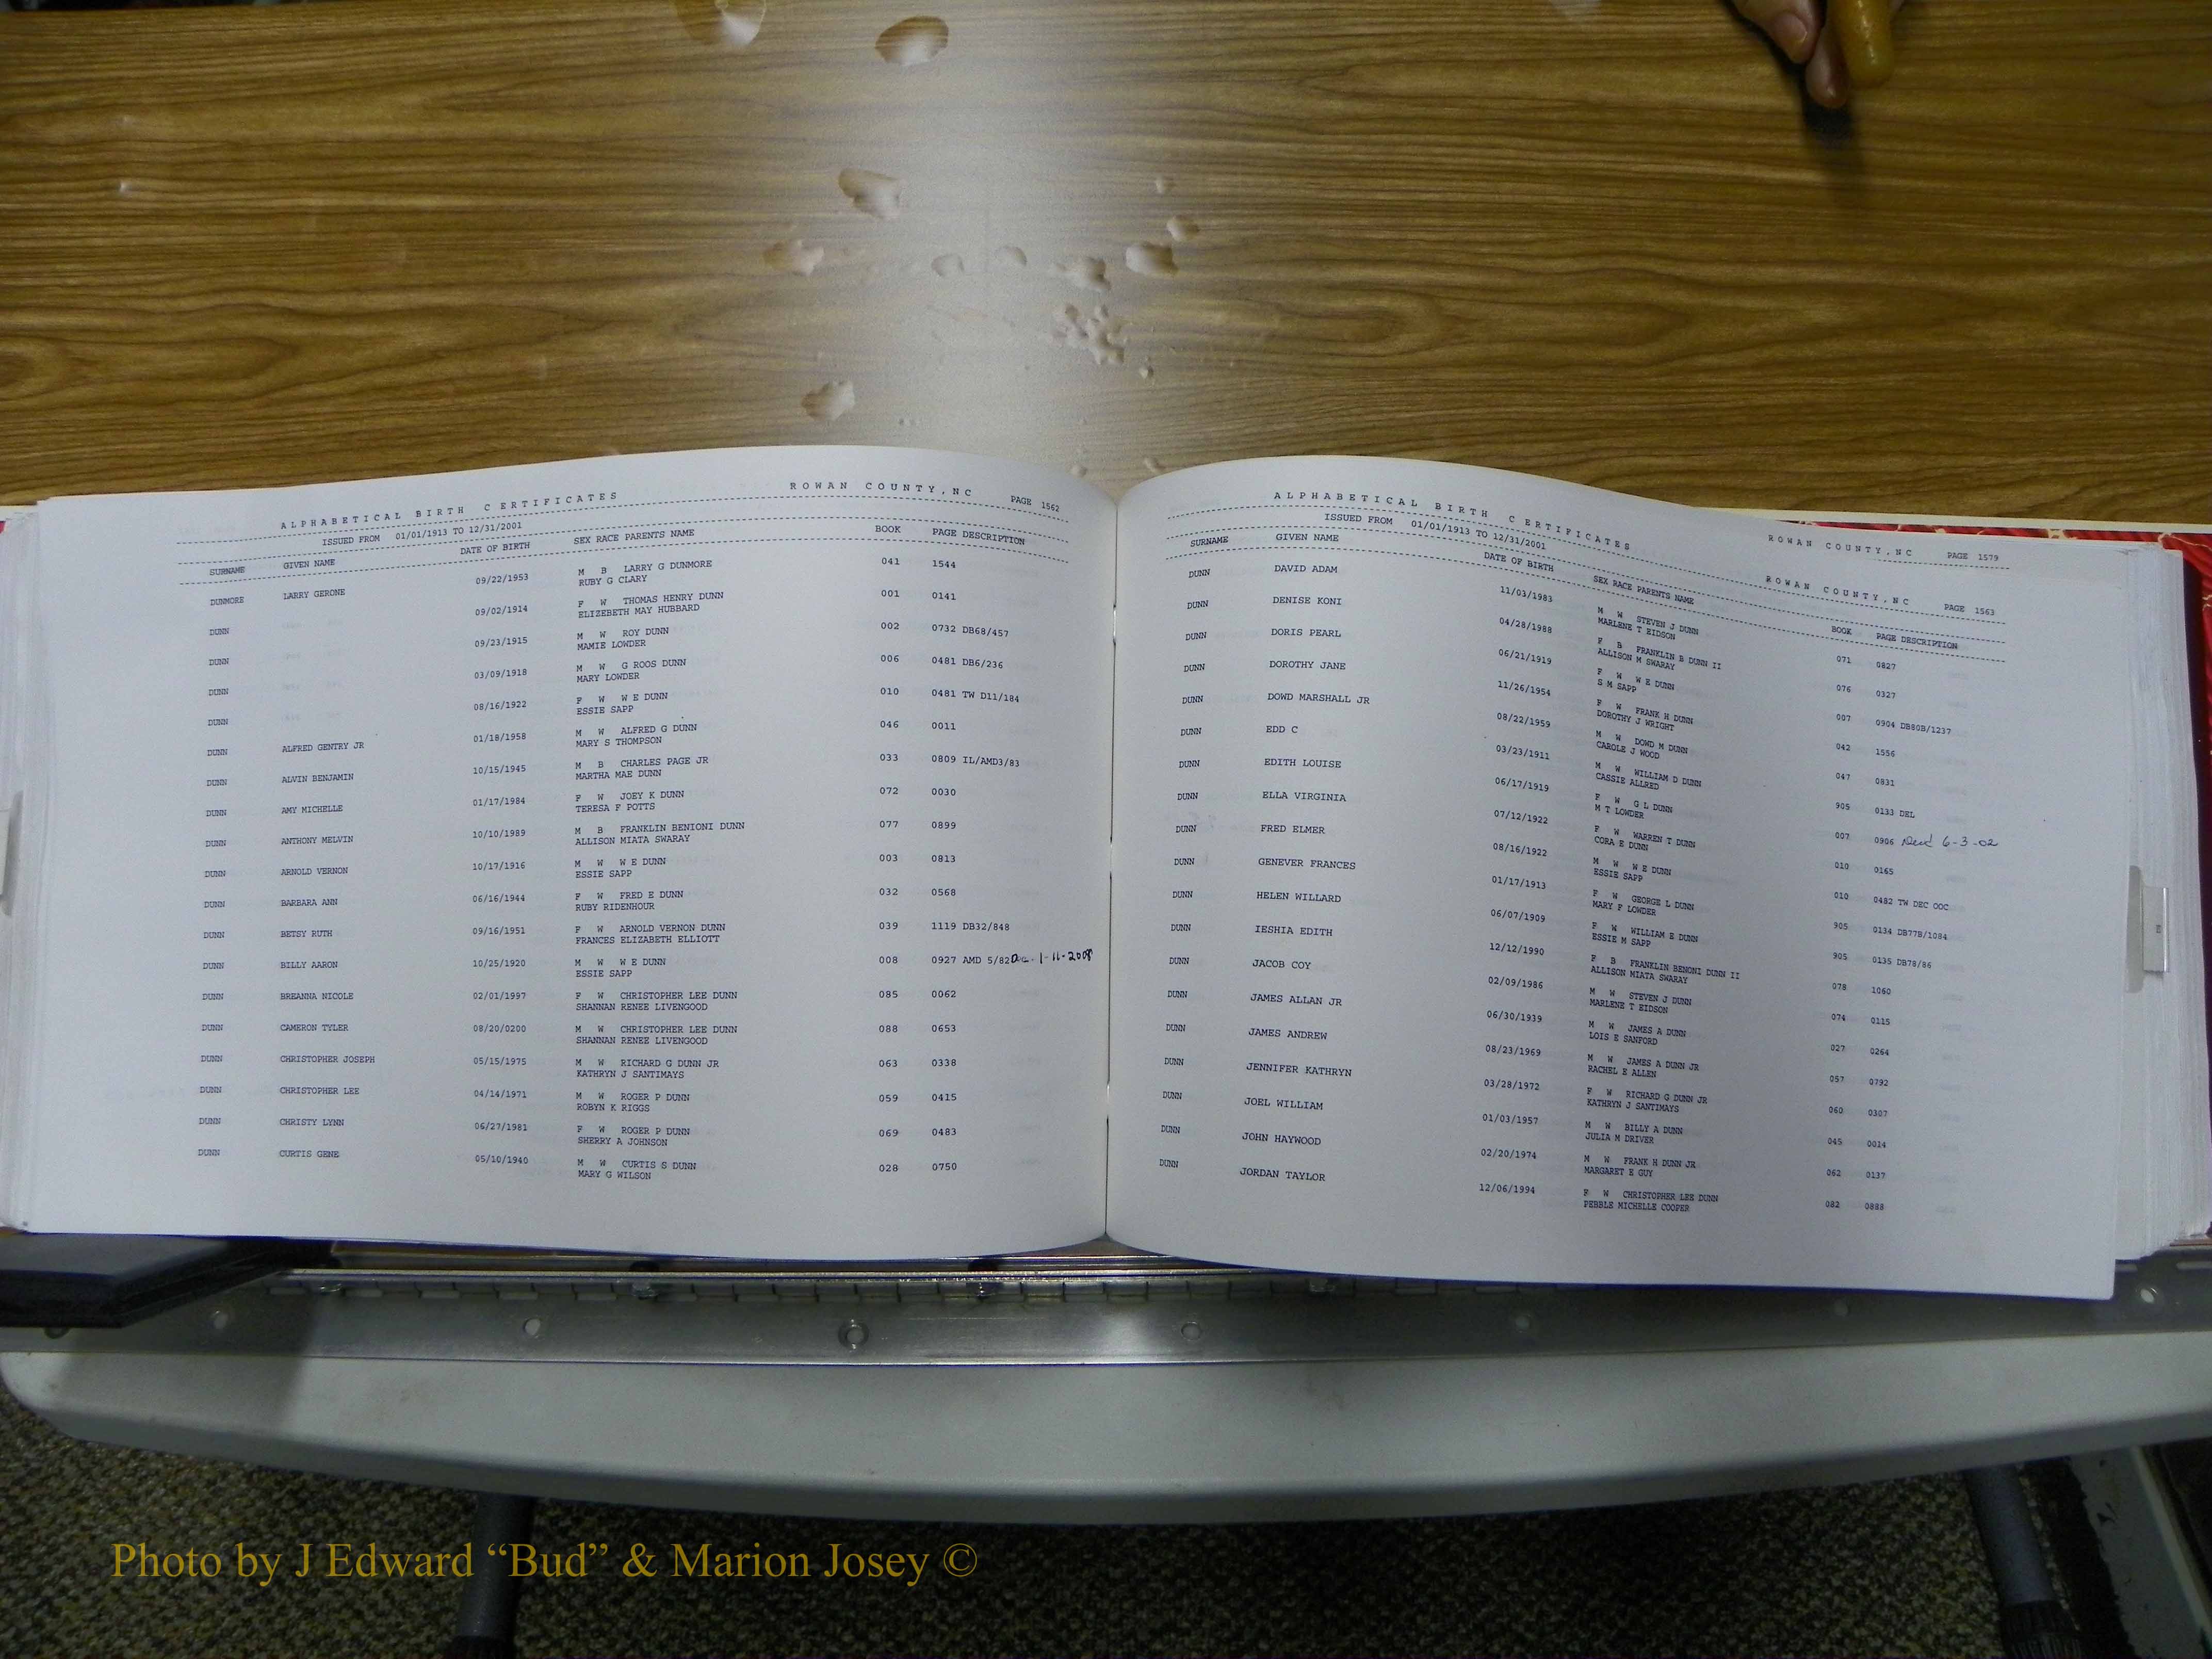 ALPHABETICAL BIRTH CERTIFICATES ROWAN COUNTY, NC PAGE 1562
ISSUED FROM 01/01/1913 TO 12/31/2001
SURNAME GIVEN NAME DATE OF BIRTH SEX RACE PARENTS NAME BOOK PAGE DESCRIPTION
DUNMORE LARRY GERONE 09/22/1953 M B LARRY G DUNMORE 041 1544
RUBY G CLARY
DUNN 09/02/1914 F W THOMAS HENRY DUNN 001 0141
ELIZEBETH MAY HUBBARD
DUNN 09/23/1915 M W ROY DUNN 002 0732 DB68/457
MAMIE LOWDER
DUNN 03/09/1918 M W G ROOS DUNN 006 0481 DB6/236
MARY LOWDER
DUNN 08/16/1922 F W W E DUNN 010 0481 TW D11/184
ESSIE SAPP
DUNN ALFRED GENTRY JR 01/18/1958 M W ALFRED G DUNN 046 0011
MARY S THOMPSON
DUNN ALVIN BENJAMIN 10/15/1945 M B CHARLES PAGE JR 033 0809 IL/AMD3/83
MARTHA MAE DUNN
DUNN AMY MICHELLE 01/17/1984 F W JOEY K DUNN 072 0030
TERESA F POTTS
DUNN ANTHONY MELVIN 10/10/1989 M B FRANKLIN BENIONI DUNN 077 0899
ALLISON MIATA SWARAY
DUNN ARNOLD VERNON 10/17/1916 M W W E DUNN 003 0813
ESSIE SAPP
DUNN BARBARA ANN 06/16/1944 F W FRED E DUNN 032 0568
RUBY RIDENHOUR
DUNN BETSY RUTH 09/16/1951 F W ARNOLD VERNON DUNN 039 1119 DB32/848
FRANCES ELIZABETH ELLIOTT
DUNN BILLY AARON 10/25/1920 M W W E DUNN 008 0927 AMD 5/82 Dec. 1-11-2008
ESSIE SAPP
DUNN BREANNA NICOLE 02/01/1997 F W CHRISTOPHER LEE DUNN 085 0062
SHANNAN RENEE LIVENGOOD
DUNN CAMERON TYLER 08/20/0200 M W CHRISTOPHER LEE DUNN 088 0653
SHANNAN RENEE LIVENGOOD
DUNN CHRISTOPHER JOSEPH 05/15/1975 M W RICHARD G DUNN JR 063 0338
KATHRYN J SANTIMAYS
DUNN CHRISTOPHER LEE 04/14/1971 M W ROGER P DUNN 059 0415
ROBYN K RIGGS
DUNN CHRISTY LYNN 06/27/1981 F W ROGER P DUNN 069 0483
SHERRY A JOHNSON
DUNN CURTIS GENE 05/10/1940 M W CURTIS S DUNN 028 0750
MARY G WILSON
ROWAN COUNTY, NC PAGE 1579
ALPHABETICAL BIRTH CERTIFICATES ROWAN COUNTY, NC PAGE 1563
ISSUED FROM 01/01/1913 TO 12/31/2001
SURNAME GIVEN NAME DATE OF BIRTH SEX RACE PARENTS NAME BOOK PAGE DESCRIPTION
DUNN DAVID ADAM 11/03/1983 M W STEVEN J DUNN 071 0827
MARLENE T EIDSON
DUNN DENISE KONI 04/28/1988 F B FRANKLIN B DUNN II 076 0327
ALLISON M SWARAY
DUNN DORIS PEARL 06/21/1919 F W W E DUNN 007 0904 DB80B/1237
S M SAPP
DUNN DOROTHY JANE 11/26/1954 F W FRANK H DUNN 042 1556
DOROTHY J WRIGHT
DUNN DOWD MARSHALL JR 08/22/1959 M W DOWD M DUNN 047 0831
CAROLE J WOOD
DUNN EDD C 03/23/1911 M W WILLIAM D DUNN 905 0133 DEL
CASSIE ALLRED
DUNN EDITH LOUISE 06/17/1919 F W G L DUNN 007 0906 Decd 6-3-02
M T LOWDER
DUNN ELLA VIRGINIA 07/12/1922 F W WARREN T DUNN 010 0165
CORA E DUNN
DUNN FRED ELMER 08/16/1922 M W W E DUNN 010 0482 TW DEC OOC
ESSIE SAPP
DUNN GENEVER FRANCES 01/17/1913 F W GEORGE L DUNN 905 0134 DB77B/1084
MARY F LOWDER
DUNN HELEN WILLARD 06/07/1909 F W WILLIAM E DUNN 905 0135 DB78/86
ESSIE M SAPP
DUNN IESHIA EDITH 12/12/1990 F B FRANKLIN BENONI DUNN II 078 1060
ALLISON MIATA SWARAY
DUNN JACOB COY 02/09/1986 M W STEVEN J DUNN 074 0115
MARLENE T EIDSON
DUNN JAMES ALLAN JR 06/30/1939 M W JAMES A DUNN 027 0264
LOIS E SANFORD
DUNN JAMES ANDREW 08/23/1969 M W JAMES A DUNN JR 057 0792
RACHEL E ALLEN
DUNN JENNIFER KATHRYN 03/28/1972 F W RICHARD G DUNN JR 060 0307
KATHRYN J SANTIMAYS
DUNN JOEL WILLIAM 01/03/1957 M W BILLY A DUNN 045 0014
JULIA M DRIVER
DUNN JOHN HAYWOOD 02/20/1974 M W FRANK H DUNN JR 062 0137
MARGARET E GUY
DUNN JORDAN TAYLOR 12/06/1994 F W CHRISTOPHER LEE DUNN 082 0888
PEBBLE MICHELLE COOPER
Photo by J Edward “Bud” & Marion Josey ©